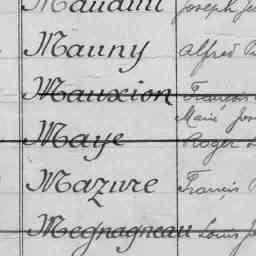 Mauny Alfred
Mauxion François
Marie
Maye Roger
Mazure Francis
Megnagneau Louis